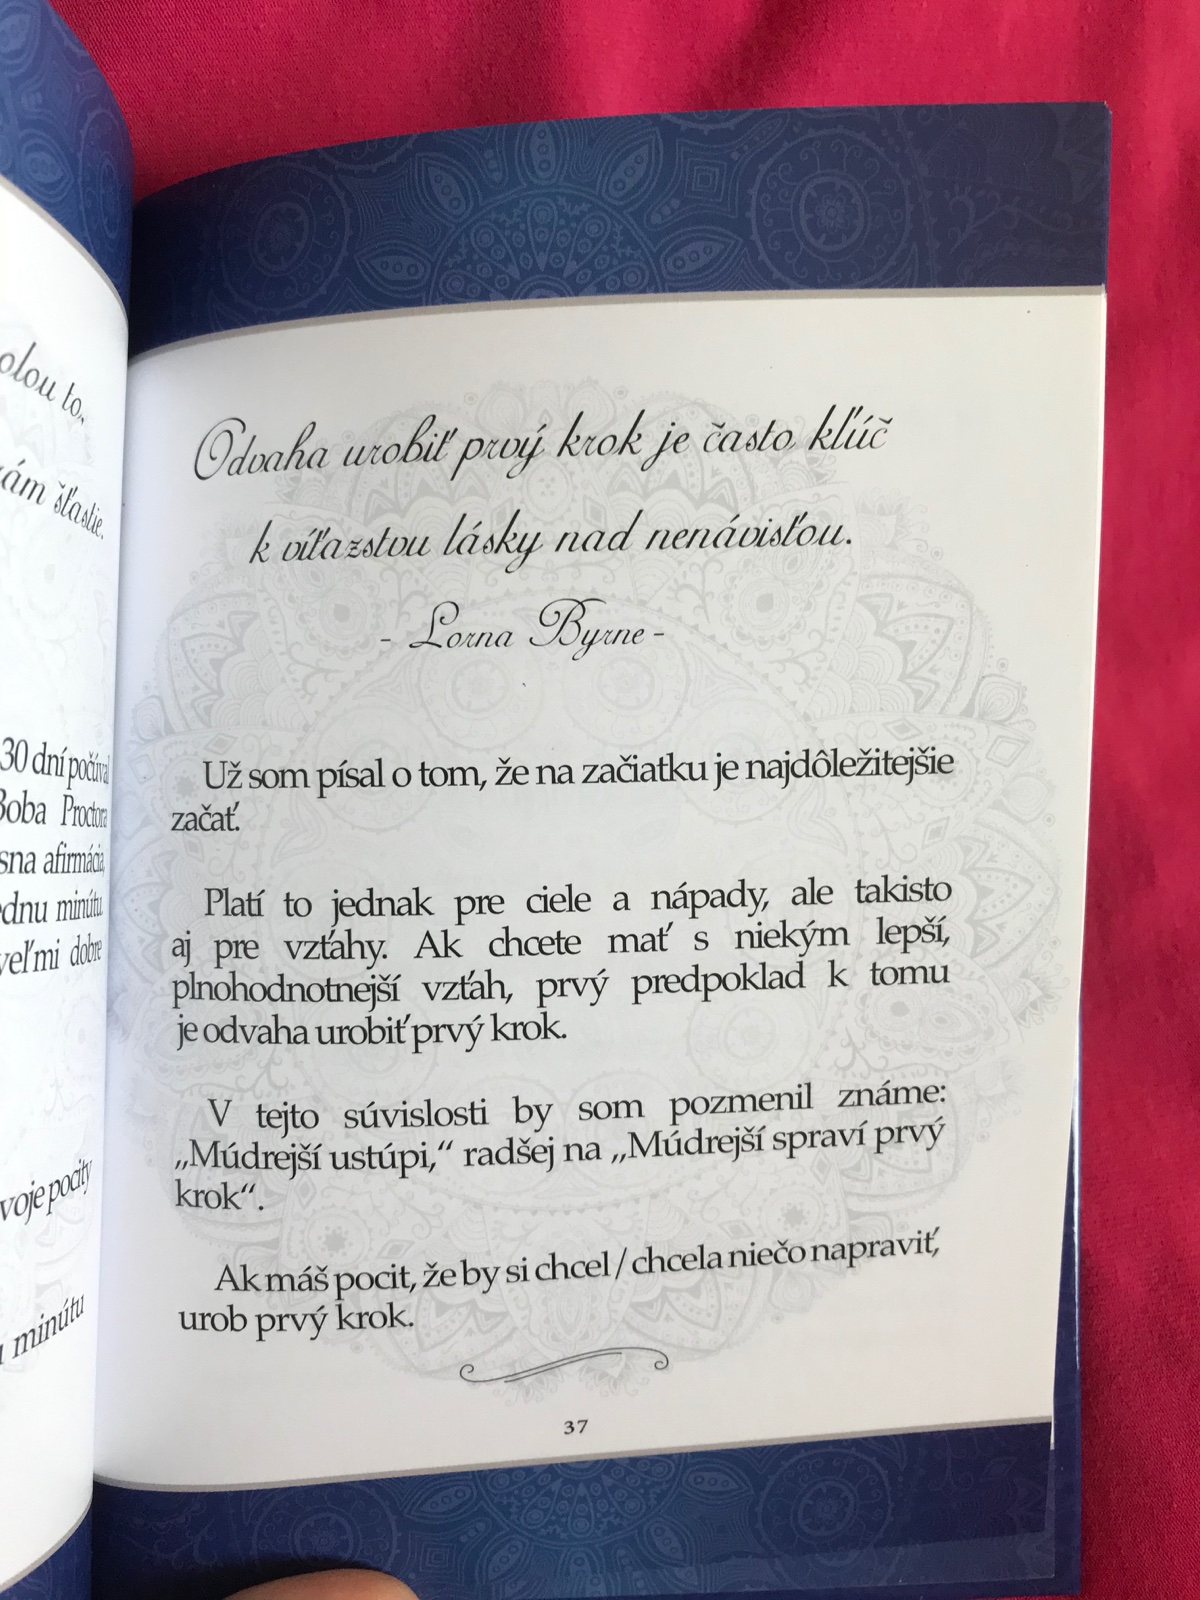 olou to,
ám šťastie.
30 dní počúval
Boba Proctora
sna afirmácia,
ednu minútu
veľmi dobre
voje pocity
minútu
Odvaha urobiť prvý krok je často kľúč
k víťazstvu lásky nad nenávisťou.
- Lorna Byrne -
Už som písal o tom, že na začiatku je najdôležitejšie
začať.
Platí to jednak pre ciele a nápady, ale takisto
aj pre vzťahy. Ak chcete mať s niekým lepší,
plnohodnotnejší vzťah, prvý predpoklad k tomu
je odvaha urobiť prvý krok.
V tejto súvislosti by som pozmenil známe:
„Múdrejší ustúpi,“ radšej na „Múdrejší spraví prvý
krok“.
Ak máš pocit, že by si chcel / chcela niečo napraviť,
urob prvý krok.
37